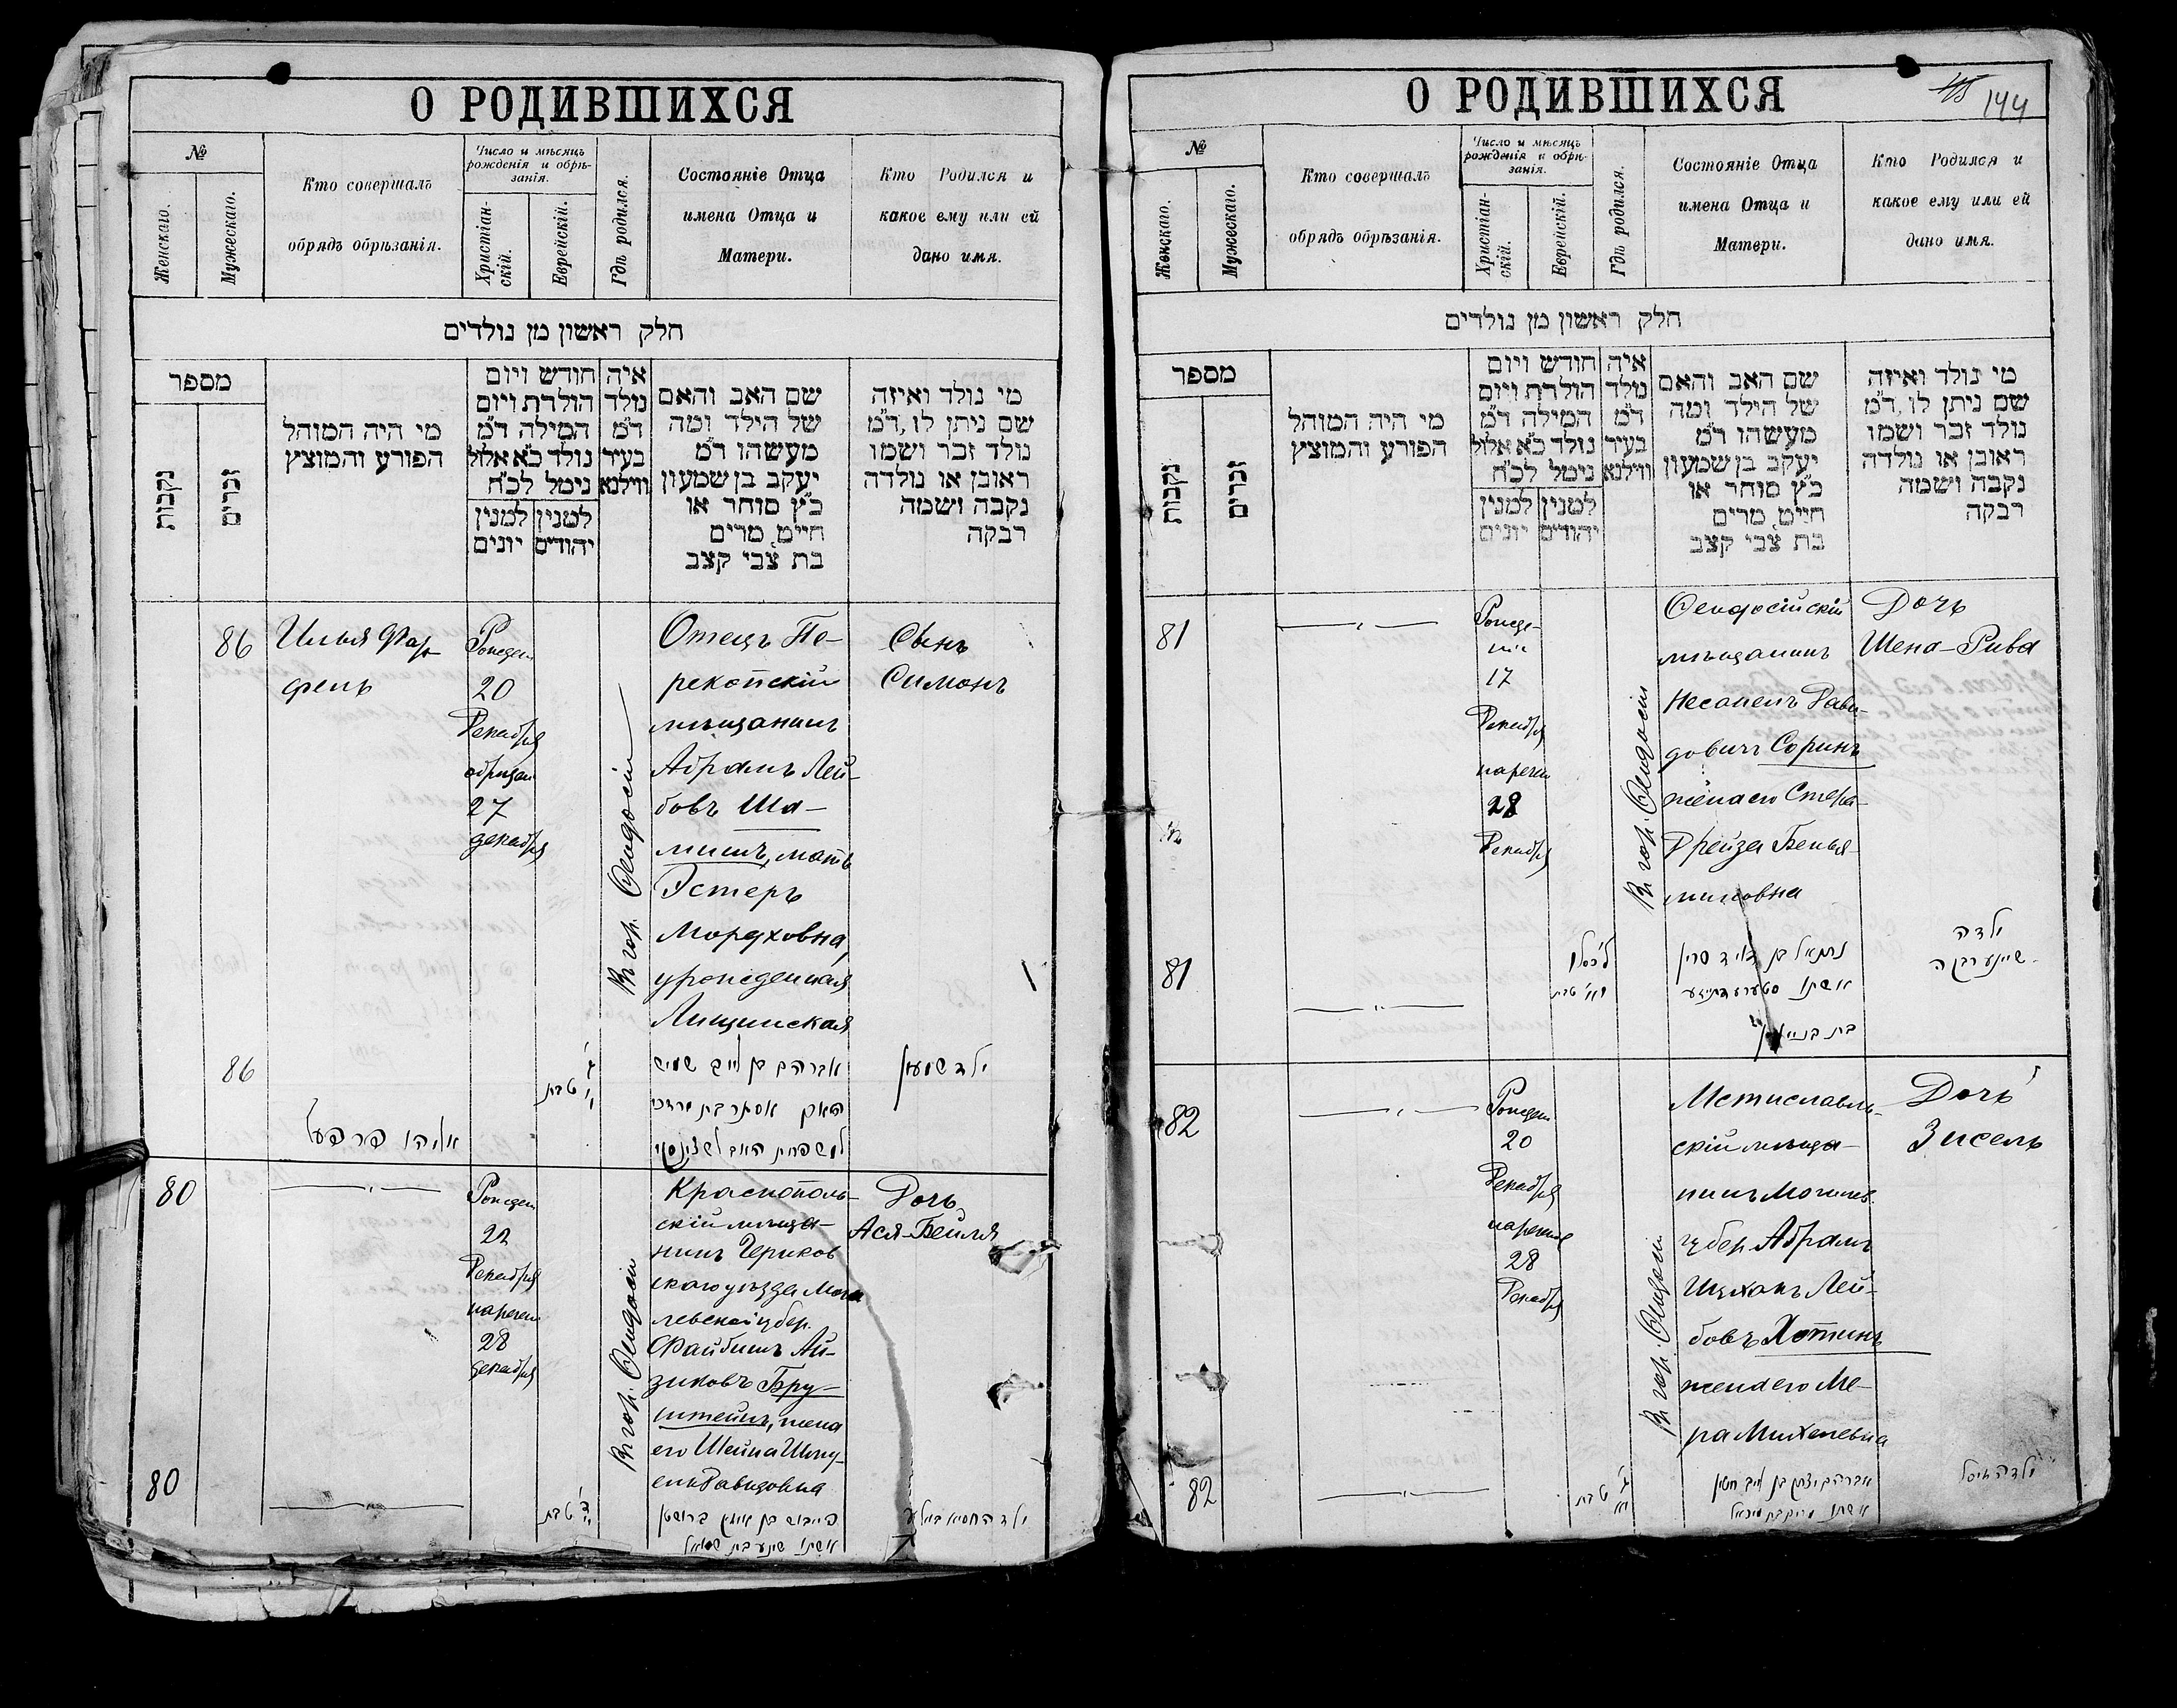 О РОДИВШИХСЯ
№
Женскаго.
Мужескаго.
Кто совершалъ
обрядъ обрѣзанія.
Число и мѣсяцъ
рожденія и обрѣ-
занія.
Христіан-
скій.
Еврейскій.
Гдѣ родился.
Состояніе Отца
имена Отца и
Матери.
Кто Родился и
какое ему или ей
дано имя.
חלק ראשון מן נולדים
מספר
נקבות
זכרים
מי היה המוהל
הפורע והמוצץ
חודש ויום
הולדת ויום
המילה ד״מ
נולד כ״א אלול
נימל לכ״ח
למנין יונים
למנין יהודים
איה
נולד
ד״מ
בעיר
ווילנא
שם האב והאם
של הילד ומה
מעשהו ד״מ
יעקב בן שמעון
כ״ץ סוחר או
חייט, מרים
בת צבי קצב
מי נולד ואיזה
שם ניתן לו, ד״מ
נולד זכר ושמו
ראובן או נולדה
נקבה ושמה
רבקה
86
Илья Фар
фель
Рожден
20
Декабря
обрѣзан
27
декабря
В гор. Ѳеодосіи
Отецъ Пе-
рекопскій
мѣщанинъ
Абрамъ Лей-
бовъ Ша-
мишъ, мать
Эстеръ
Мордховна
урожденная
Лищинская
Сынъ
Симонъ
86
אליהו פרפעל
ג׳
י׳ טבת
אברהם בן לייב שמיש
האם אסתר בת מרדכי
ילד שמעון
80
Рожден
22
Декабря
наречен
28
декабря
В гор. Ѳеодосіи
Краснополь-
скій мѣща-
нинъ Чериков
скаго уѣзда Моги
левской губер.
Файбишъ Ай-
зиковъ Бру-
штейнъ, жена
его Шейна Шму-
Давидовна
Дочь
Ася-Бейля
80
ד׳ טבת
פייבוש בן אייזיק ברושטין
אשתו שיינע בת שמואל
ילדה חסיא ביילע
О РОДИВШИХСЯ
144
№
Женскаго.
Мужескаго.
Кто совершалъ
обрядъ обрѣзанія.
Число и мѣсяцъ
рожденія и обрѣ-
занія.
Христіан-
скій.
Еврейскій.
Гдѣ родился.
Состояніе Отца
имена Отца и
Матери.
Кто Родился и
какое ему или ей
дано имя.
חלק ראשון מן נולדים
מספר
נקבות
זכרים
מי היה המוהל
הפורע והמוצץ
חודש ויום
הולדת ויום
המילה ד״מ
נולד כ״א אלול
נימל לכ״ח
למנין יונים
למנין יהודים
איה
נולד
ד״מ
בעיר
ווילנא
שם האב והאם
של הילד ומה
מעשהו ד״מ
יעקב בן שמעון
כ״ץ סוחר או
חייט, מרים
בת צבי קצב
מי נולד ואיזה
שם ניתן לו, ד״מ
נולד זכר ושמו
ראובן או נולדה
נקבה ושמה
רבקה
81
Рожде-
ніе
17
Декабря
наречен
28
Декабря
В гор. Ѳеодосіи
Ѳеодосійскій
мѣщанинъ
Несанелъ Дави-
довичъ Соринъ
жена его Стера-
Дрейза Бенья-
миновна
Дочь
Шена-Рива
81
ל׳ כסלו
י״א טבת
נתנאל בן דוד סרין
אשתו סטערע דרייזע
בת בנימין
ילדה
שיינע רבקה
82
Рожден
20
Декабря
наречение
28
Декабря
В гор. Ѳеодосіи
Мстиславль-
скій мѣща-
нинъ Могилев.
губер. Абрамъ
Ицхокъ Лей-
бовъ Хотинъ
жена его Ме-
ра Михелевна
Дочь
Зисель
82
ג׳ טבת
י״א
אברהם יצחק בן לייב חטין
אשתו מירה בת מיכאל
ילדה זיסל